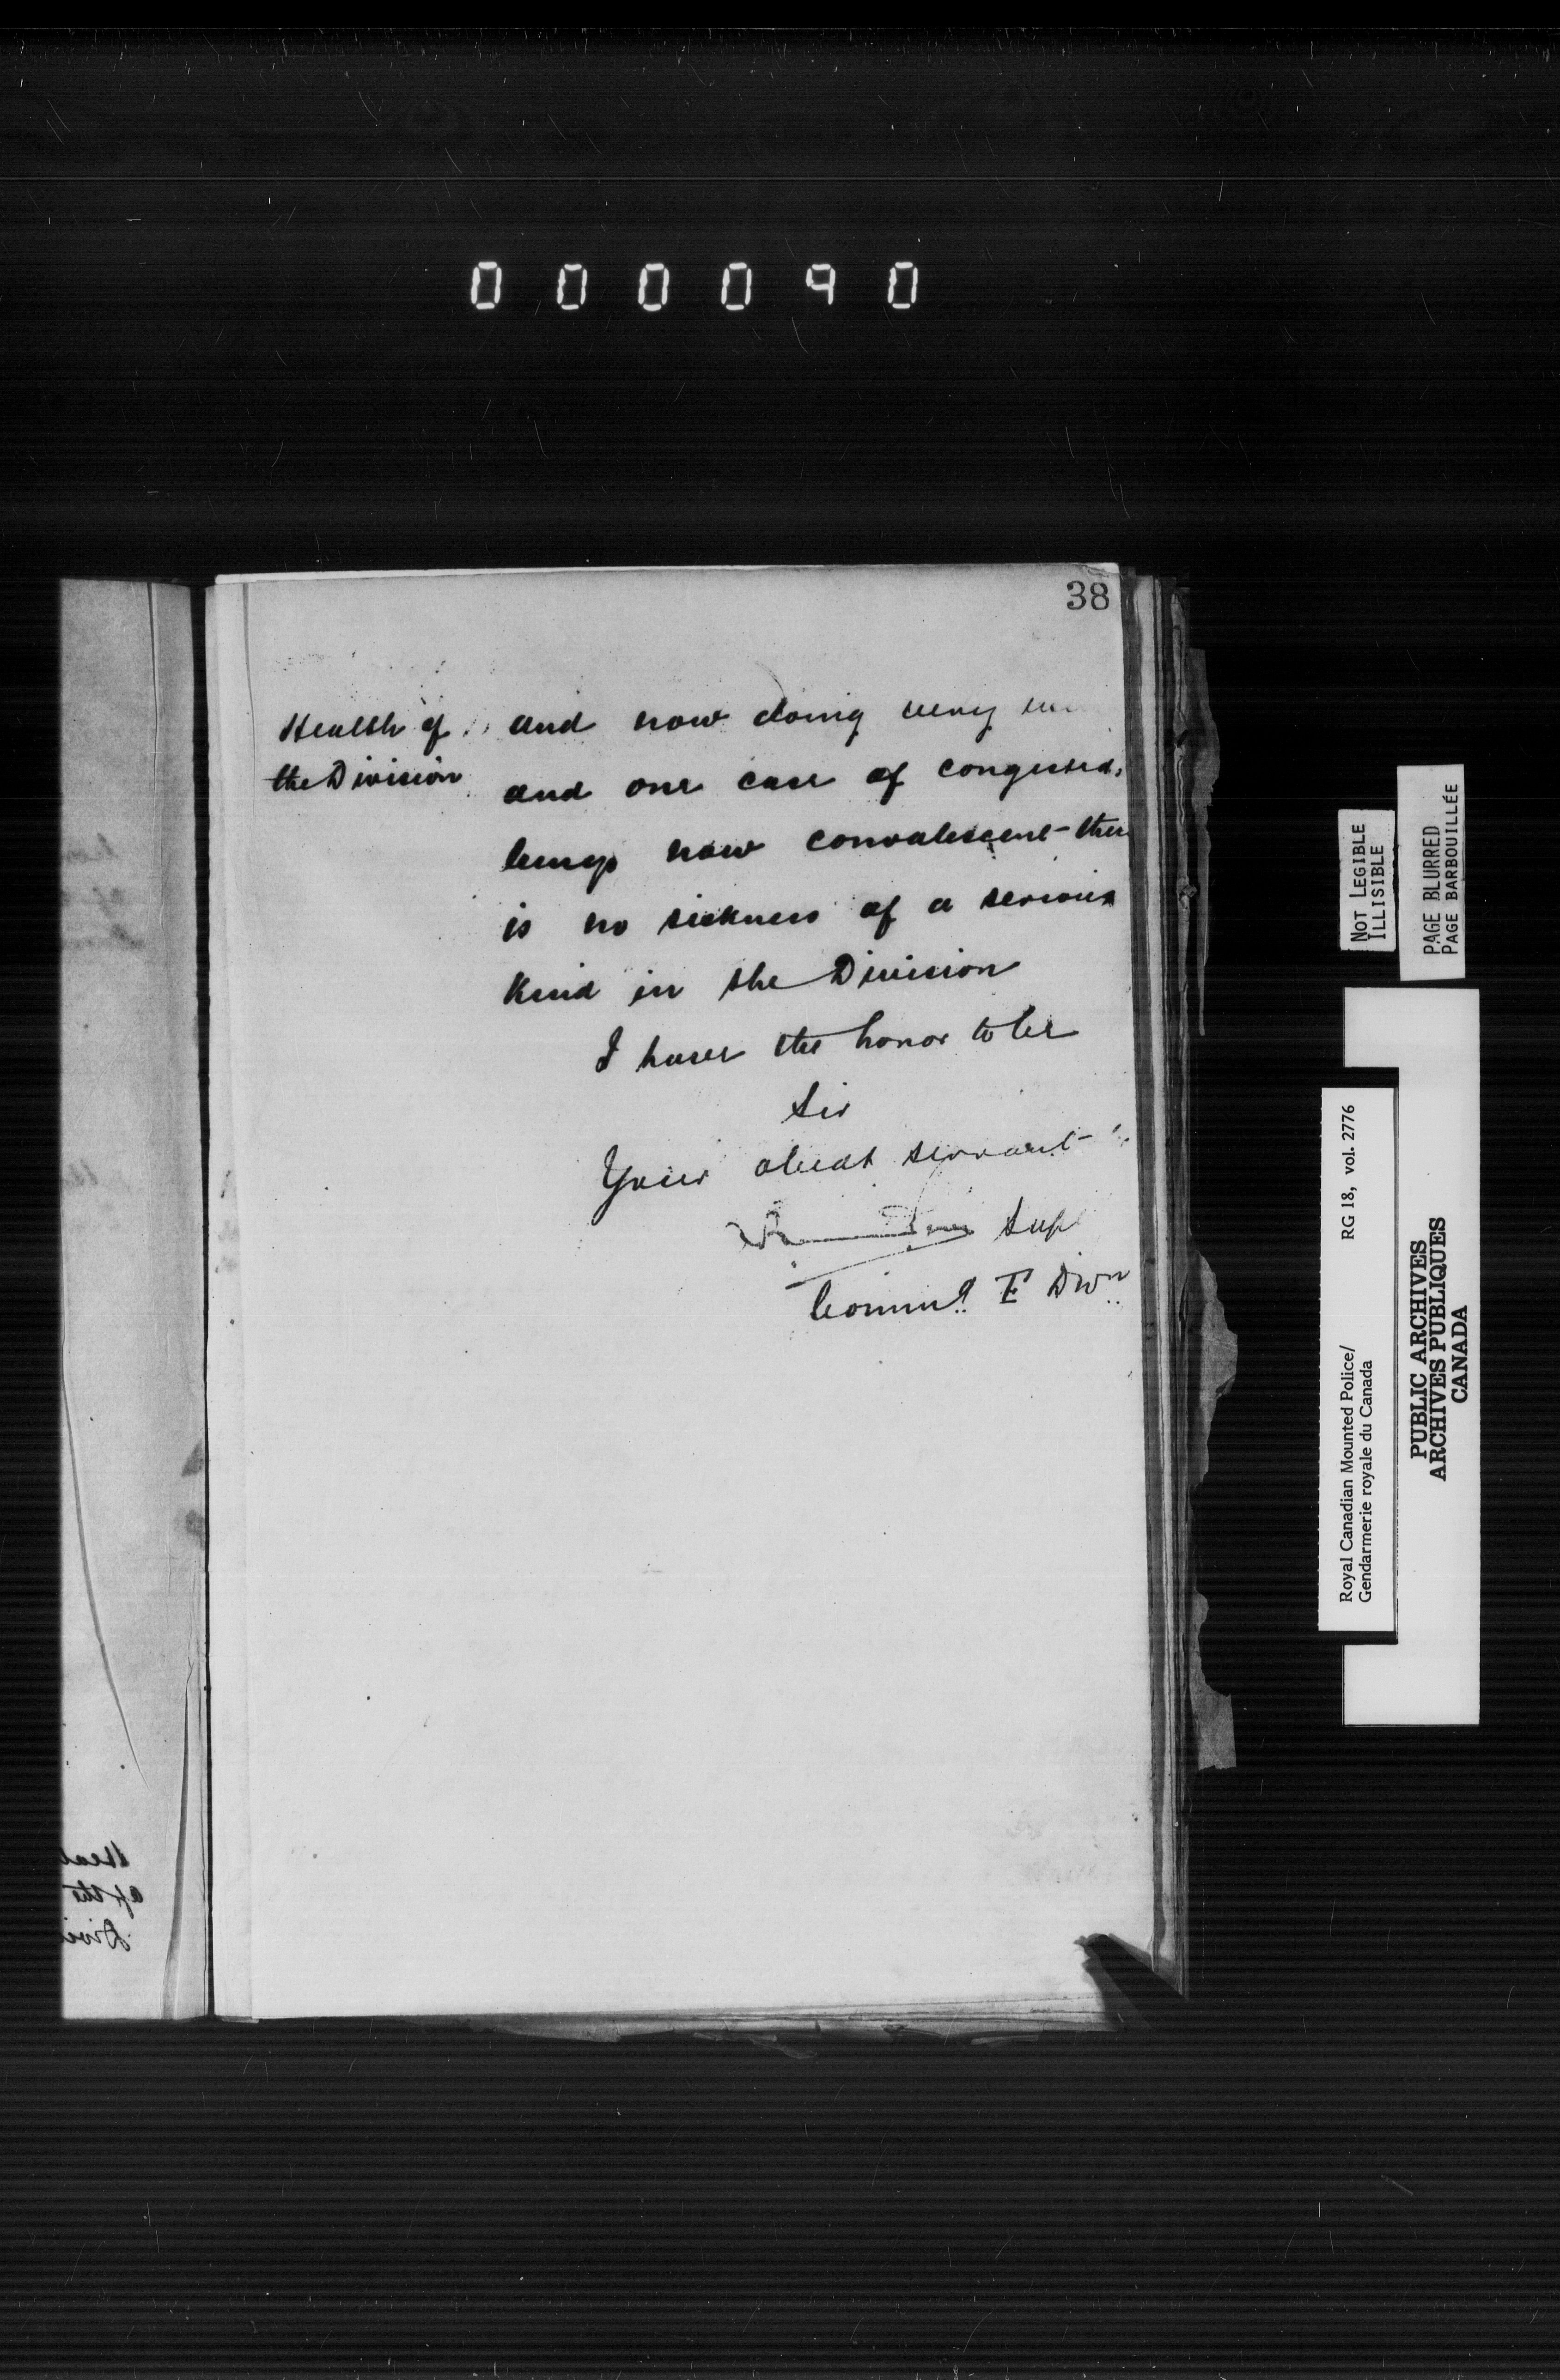 000090
38
Health of
the Division
and now doing very
and one case of congested
lungs now convalescent - there
is no sickness of a serious
kind in the Division
I have the honor to be
Sir
Your obedt servant
Supt
Commdg E Divn
Heal
of the
Divi
NOT LEGIBLE
ILLISIBLE
PAGE BLURRED
PAGE BARBOUILLÉE
Royal Canadian Mounted Police/ RG 18, vol. 2776
Gendarmerie royale du Canada
PUBLIC ARCHIVES
ARCHIVES PUBLIQUES
CANADA